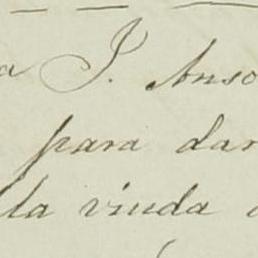 a J. Anso
para dar
la viuda